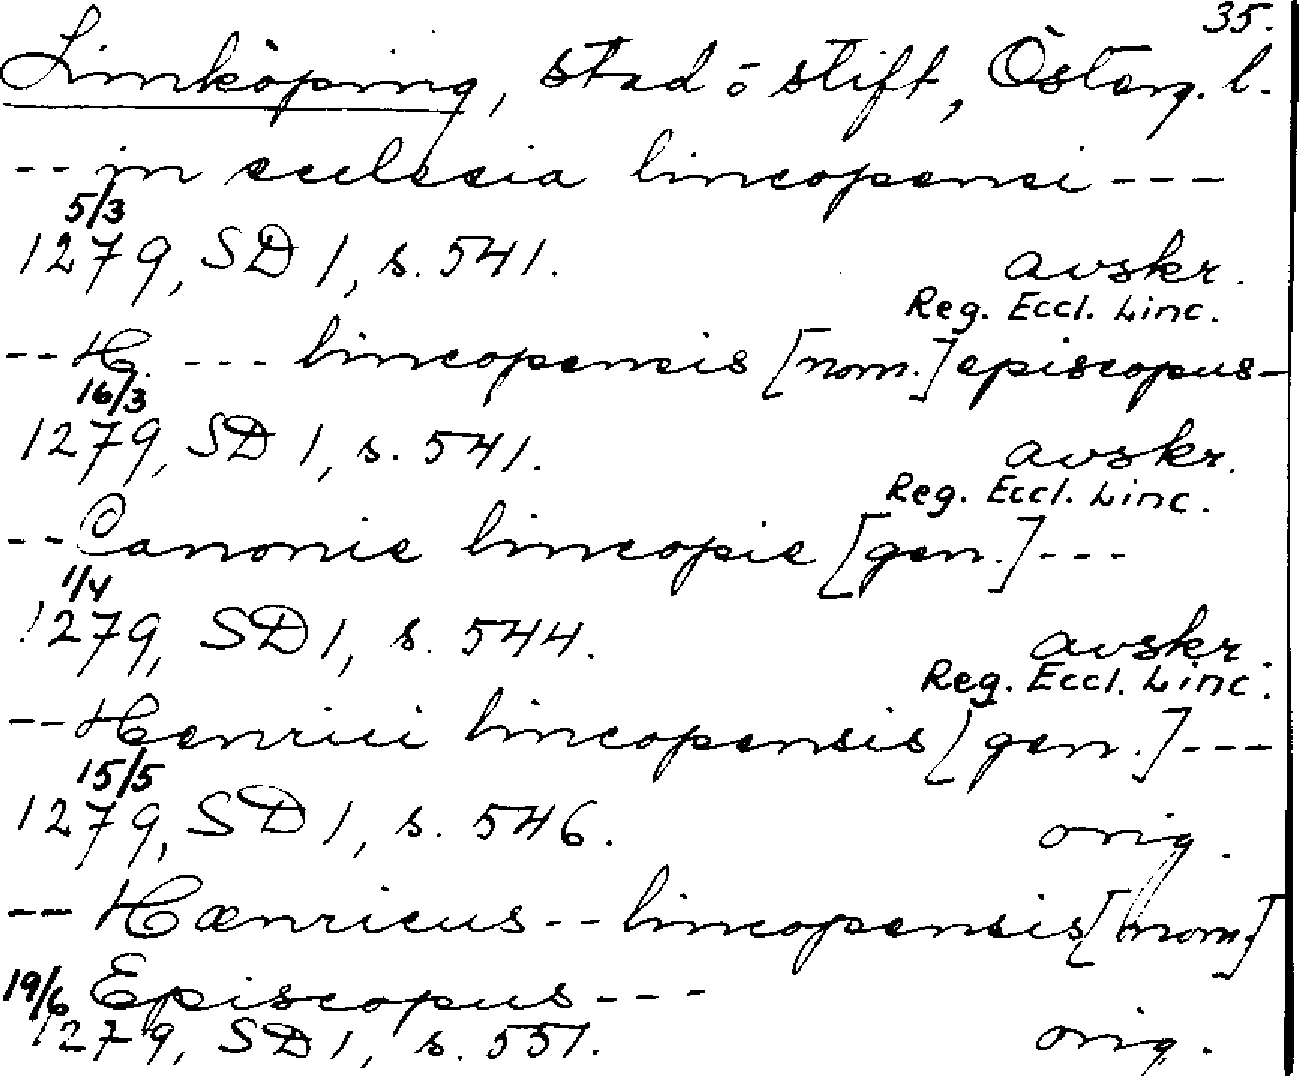 35.
Linköping, stad o stift, Österg. l.
-- in ecclesia lincopensi ---
5/3
1279, SD 1, s. 541. avskr.
Reg. Eccl. Linc.
-- H. --- lincopensis [nom.] episcopus -
16/3
1279, SD 1, s. 541. avskr.
Reg. Eccl. Linc.
-- Canonie lincopie [gen.] ---
1/4
1279, SD 1, s. 544. avskr.
Reg. Eccl. Linc.
-- Henrici lincopensis [gen.] ---
15/5
1279, SD 1, s. 546. orig.
-- Hænricus -- lincopensis [nom.]
19/6 Episcopus ---
1279, SD 1, s. 551. orig.